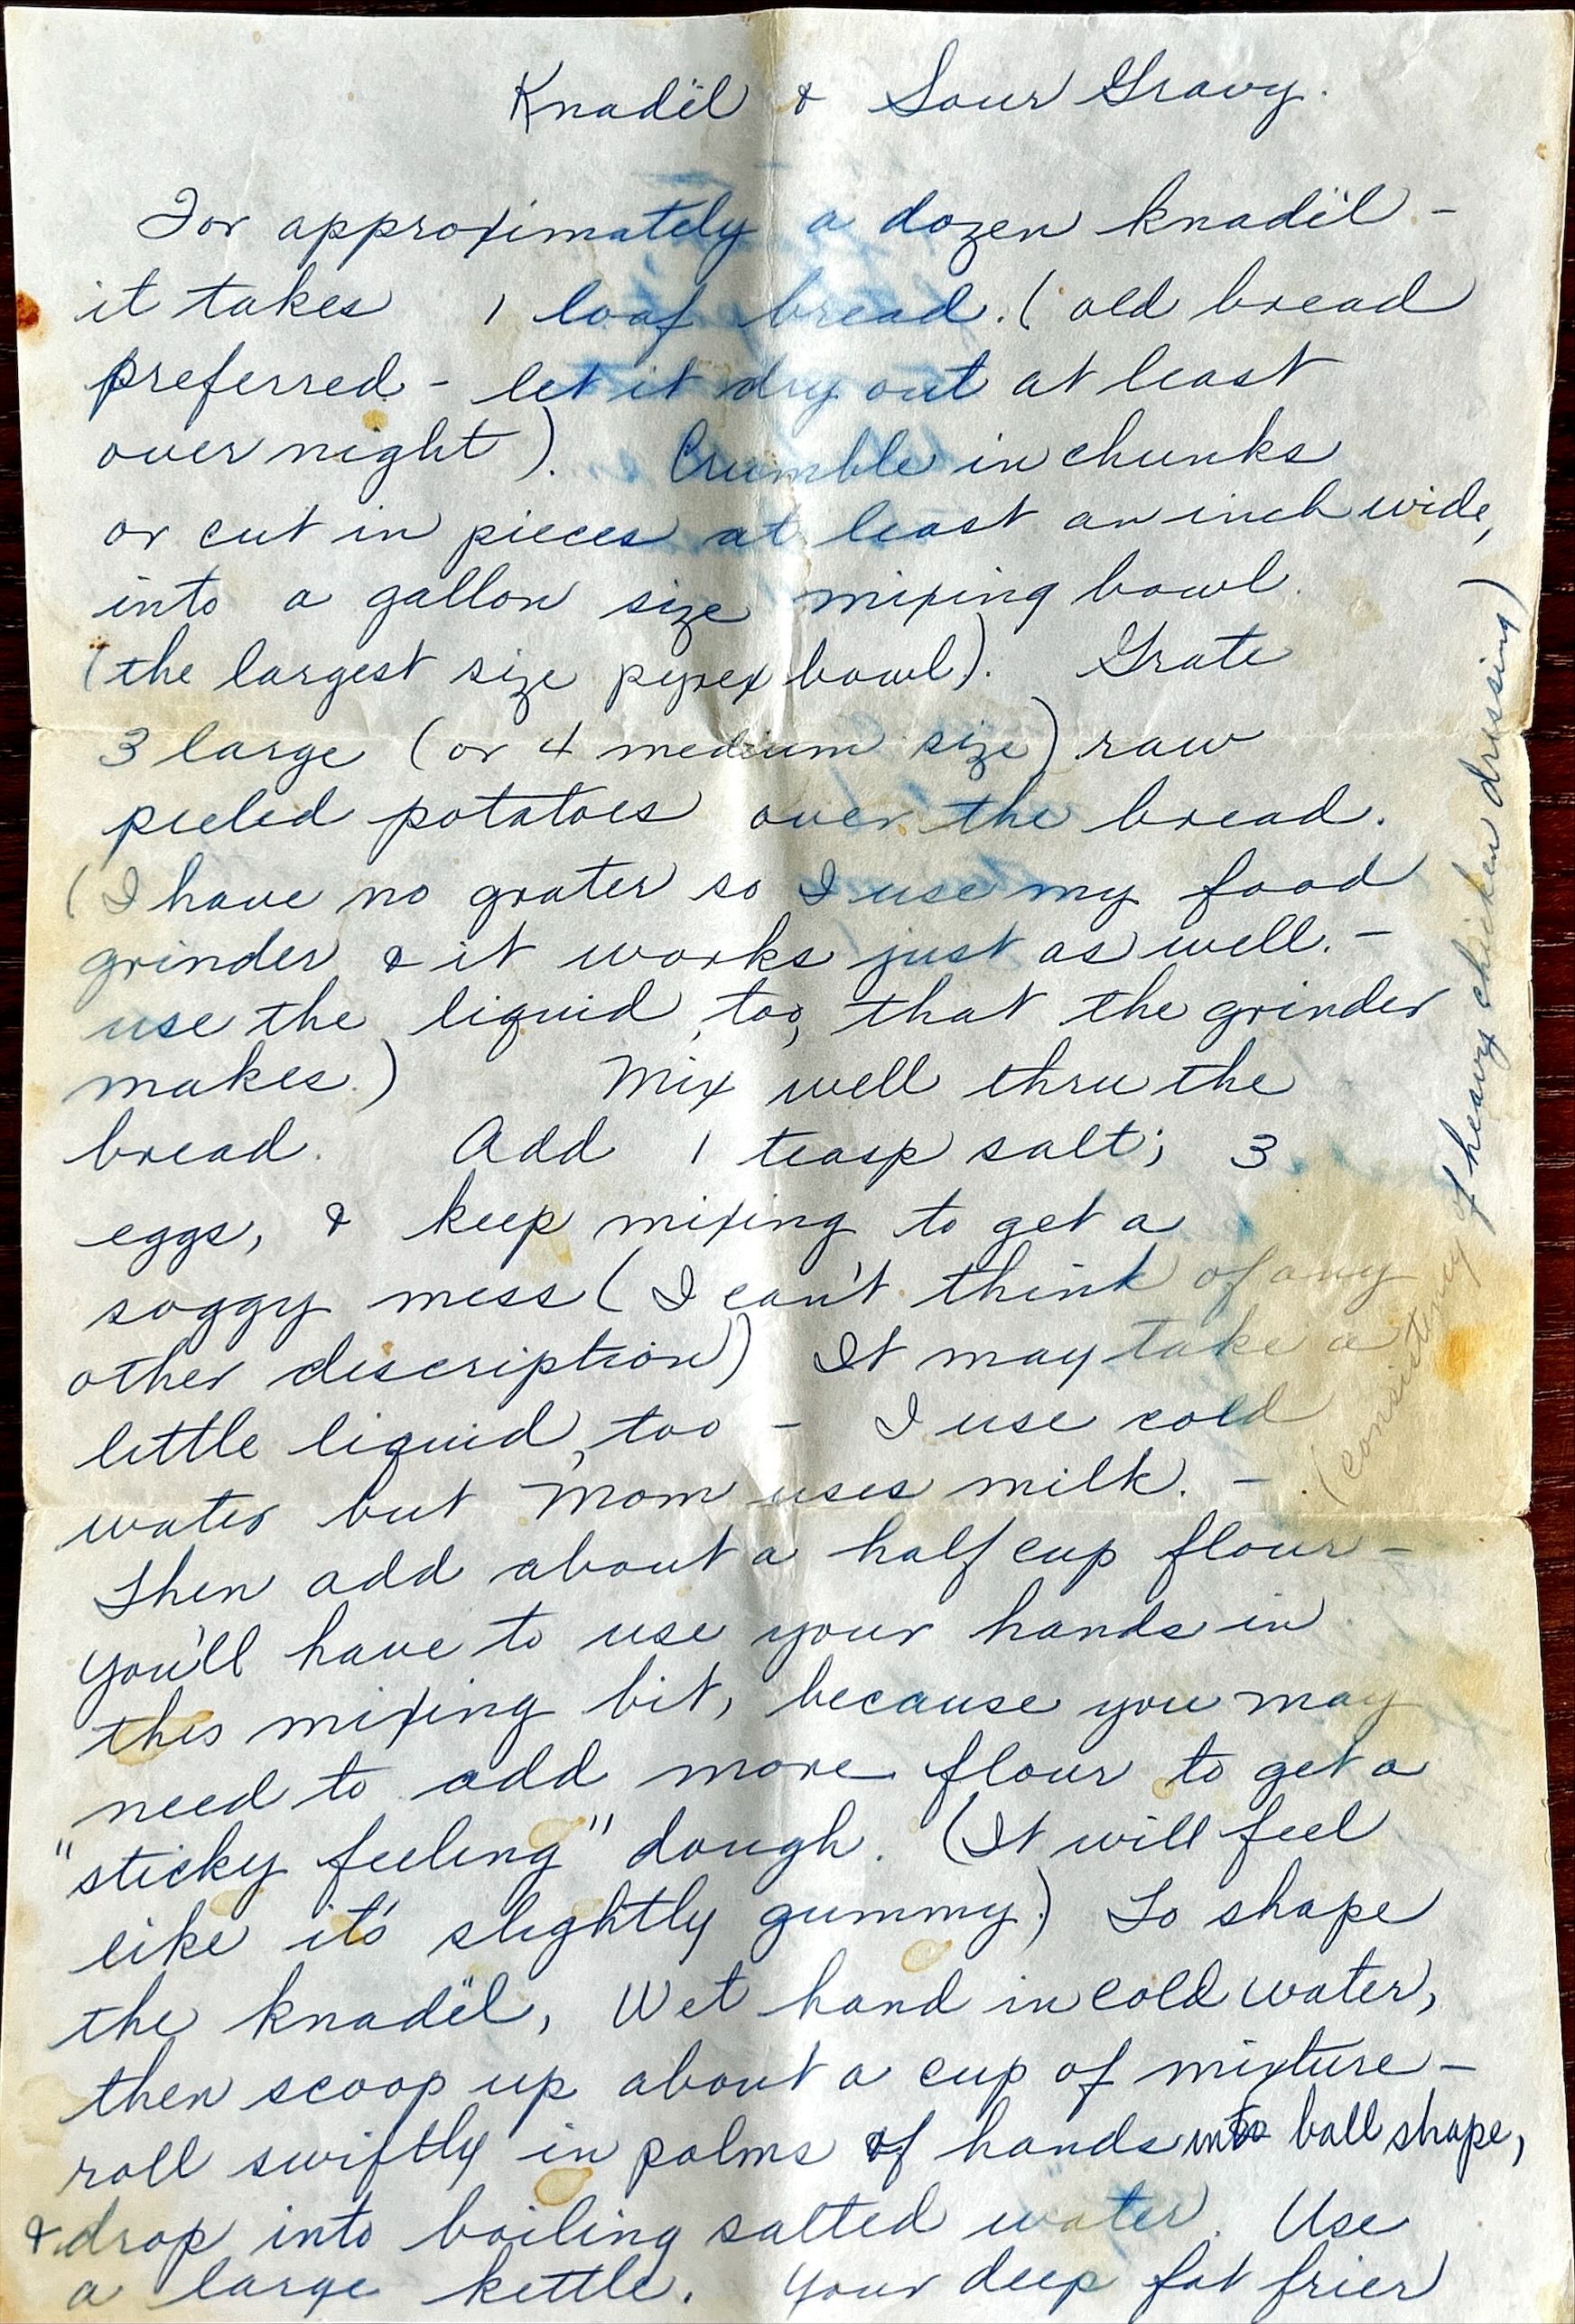 Knadël & Sour Gravy.
For approximately a dozen knadël -
it takes 1 loaf bread. (old bread
preferred - let it dry out at least
over night). Crumble in chunks
or cut in pieces at least an inch wide,
into a gallon size mixing bowl.
(the largest size pyrex bowl). Grate
3 large (or 4 medium size) raw
peeled potatoes over the bread.
(I have no grater so I use my food
grinder & it works just as well. -
use the liquid, too, that the grinder
makes.) Mix well thru the
bread. Add 1 teasp salt; 3
eggs, & keep mixing to get a
soggy mess (I can't think of any
other discription) It may take a
little liquid, too - I use cold
water but Mom uses milk. - (consistency of heavy chicken dressing)
Then add about a half cup flour -
you'll have to use your hands in
this mixing bit, because you may
need to add more flour to get a
"sticky feeling" dough. (It will feel
like it's slightly gummy.) To shape
the knadël, Wet hand in cold water,
then scoop up about a cup of mixture -
roll swiftly in palms of hands into ball shape,
& drop into boiling salted water. Use
a large kettle. Your deep fat frier